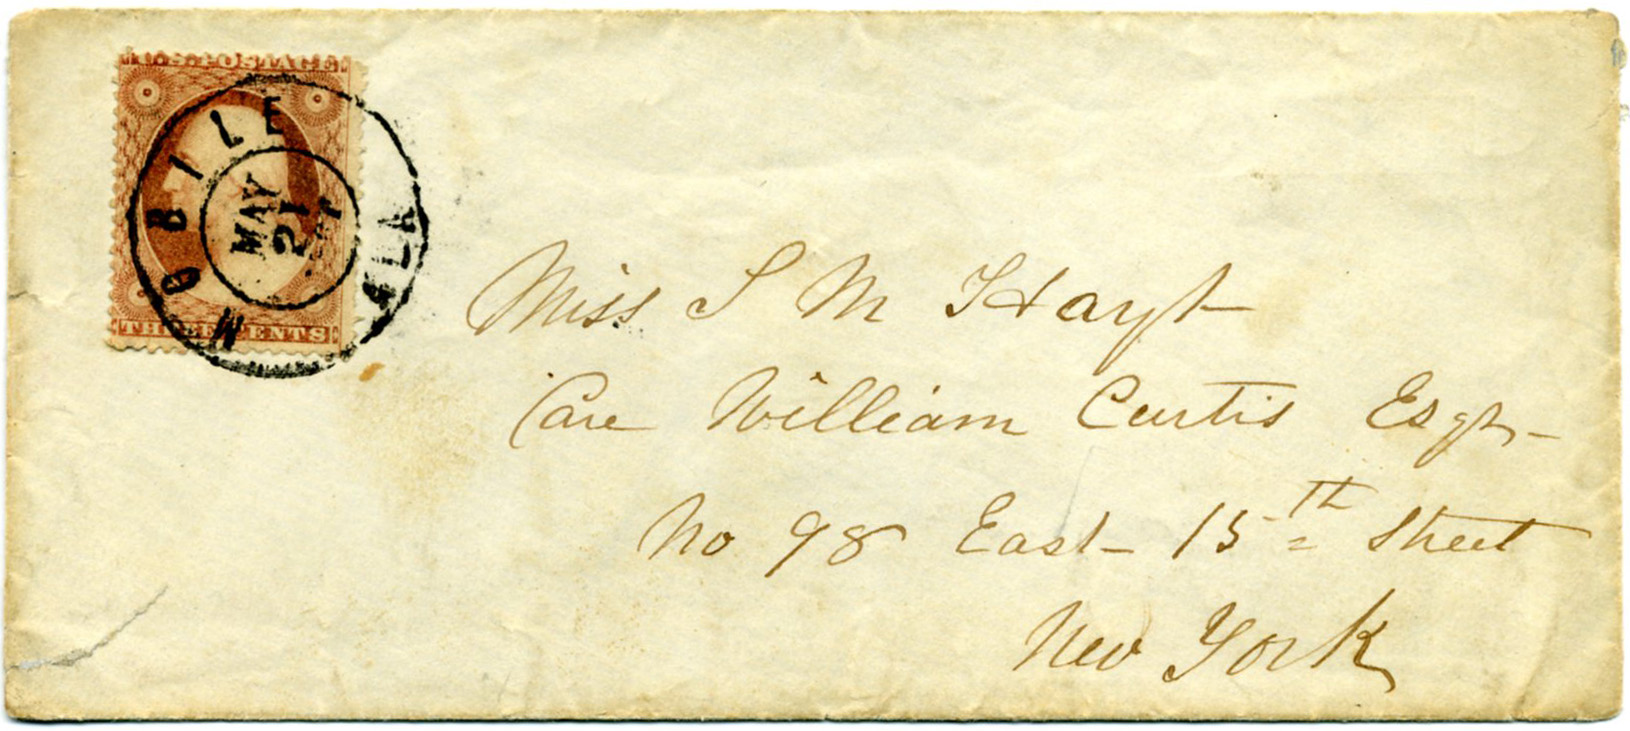 U.S. POSTAGE
THREE CENTS
MOBILE ALA
MAY
21
Miss S M Hoyt
Care William Curtis Esqr,
No 98 East 15th Street
New York